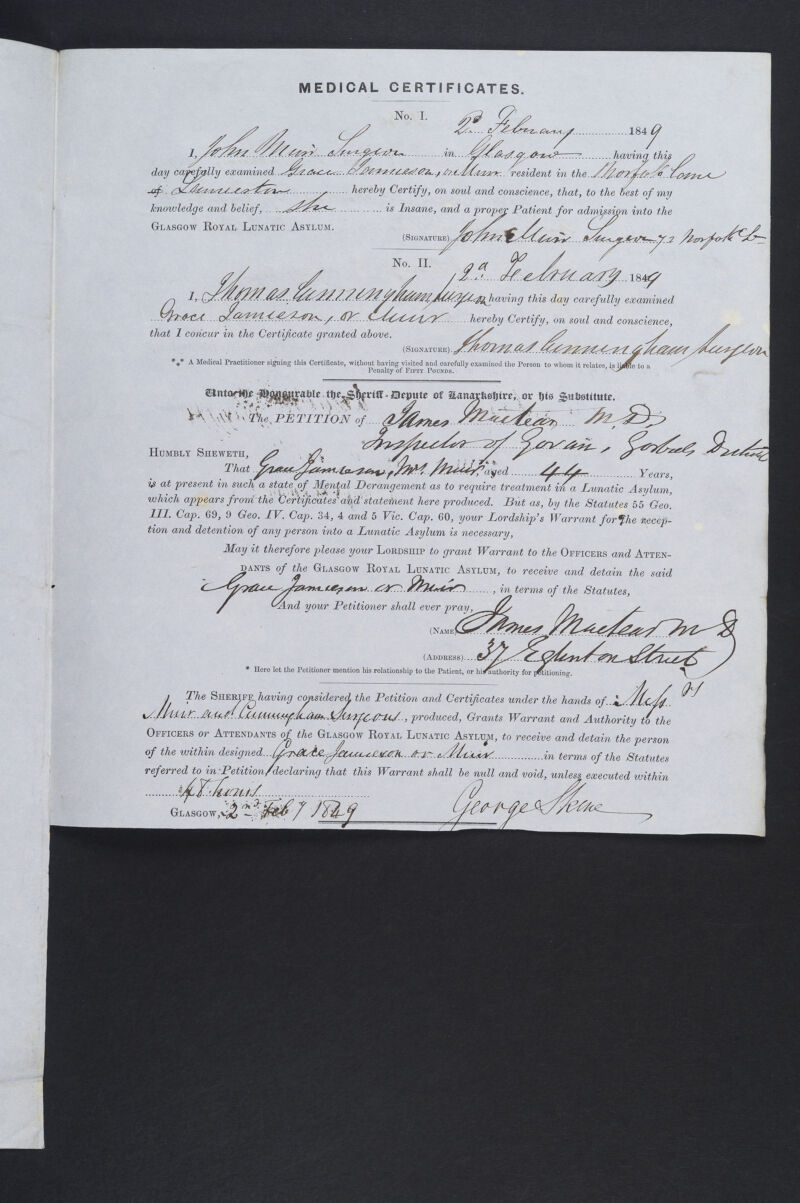 MEDICAL CERTIFICATES.
No. I. 2d February 1849
I, John Muir Surgeon in Glasgow having this
day carefully examined Grace Jamieson, or Muir resident in the Norfolk Lane
of hereby Certify, on soul and conscience, that, to the best of my
knowledge and belief, she is Insane, and a proper Patient for admission into the
GLASGOW ROYAL LUNATIC ASYLUM.
(SIGNATURE) John Muir Surgeon 72 Norfolk
No. II. 2d February 1849
I, Thomas Cunningham Surgeon having this day carefully examined
Grace Jamieson, or Muir hereby Certify, on soul and conscience,
that I concur in the Certificate granted above.
(SIGNATURE) Thomas Cunningham Surgeon
*** A Medical Practitioner signing this Certificate, without having visited and carefully examined the Person to whom it relates, is liable to a
Penalty of FIFTY POUNDS.
Unto the Honourable the Sheriff-Depute of Lanarkshire, or his Substitute.
The PETITION of James Maclean M.D.
Inspector of Govan, Gorbals District
HUMBLY SHEWETH,
That Grace Jamieson, Mrs. Muir aged 44 Years,
is at present in such a state of Mental Derangement as to require treatment in a Lunatic Asylum,
which appears from the Certificates and statement here produced. But as, by the Statutes 55 Geo.
III. Cap. 69, 9 Geo. IV. Cap. 34, 4 and 5 Vic. Cap. 60, your Lordship's Warrant for the recep-
tion and detention of any person into a Lunatic Asylum is necessary,
May it therefore please your LORDSHIP to grant Warrant to the OFFICERS and ATTEN-
DANTS of the GLASGOW ROYAL LUNATIC ASYLUM, to receive and detain the said
Grace Jamieson or Muir, in terms of the Statutes,
And your Petitioner shall ever pray,
(NAME) James Maclean M D
(ADDRESS) 37 Eglinton Street
* Here let the Petitioner mention his relationship to the Patient, or his authority for petitioning.
The SHERIFF having considered the Petition and Certificates under the hands of Messrs
Muir and Cunningham Surgeons, produced, Grants Warrant and Authority to the
OFFICERS or ATTENDANTS of the GLASGOW ROYAL LUNATIC ASYLUM, to receive and detain the person
of the within designed Grace Jamieson or Muir in terms of the Statutes
referred to in Petition declaring that this Warrant shall be null and void, unless executed within
48 hours
GLASGOW, 2nd Feby 1849 George Skene